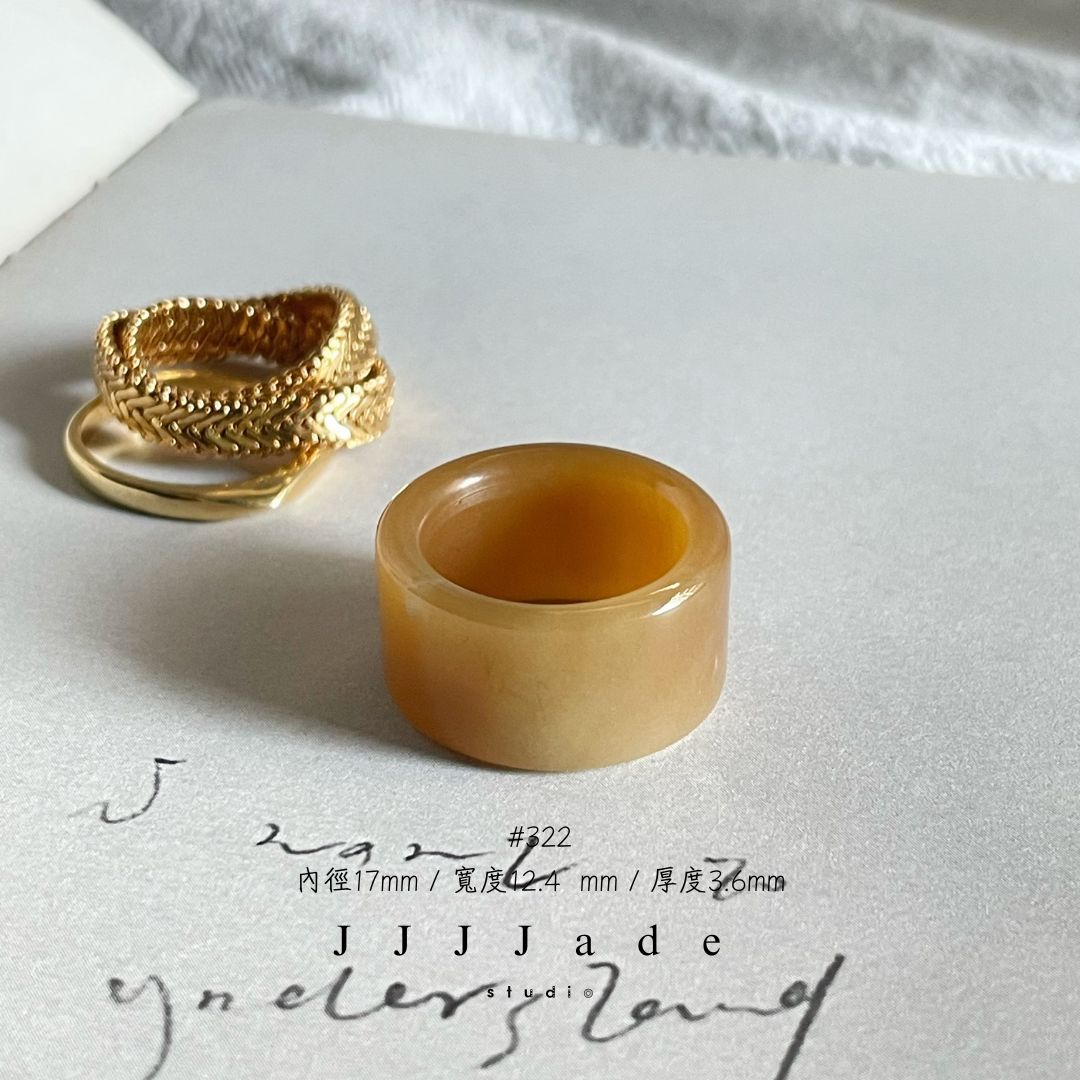 I want to
#322
內徑17mm / 寬度12.4 mm / 厚度3.6mm
JJJJade
studio
understand